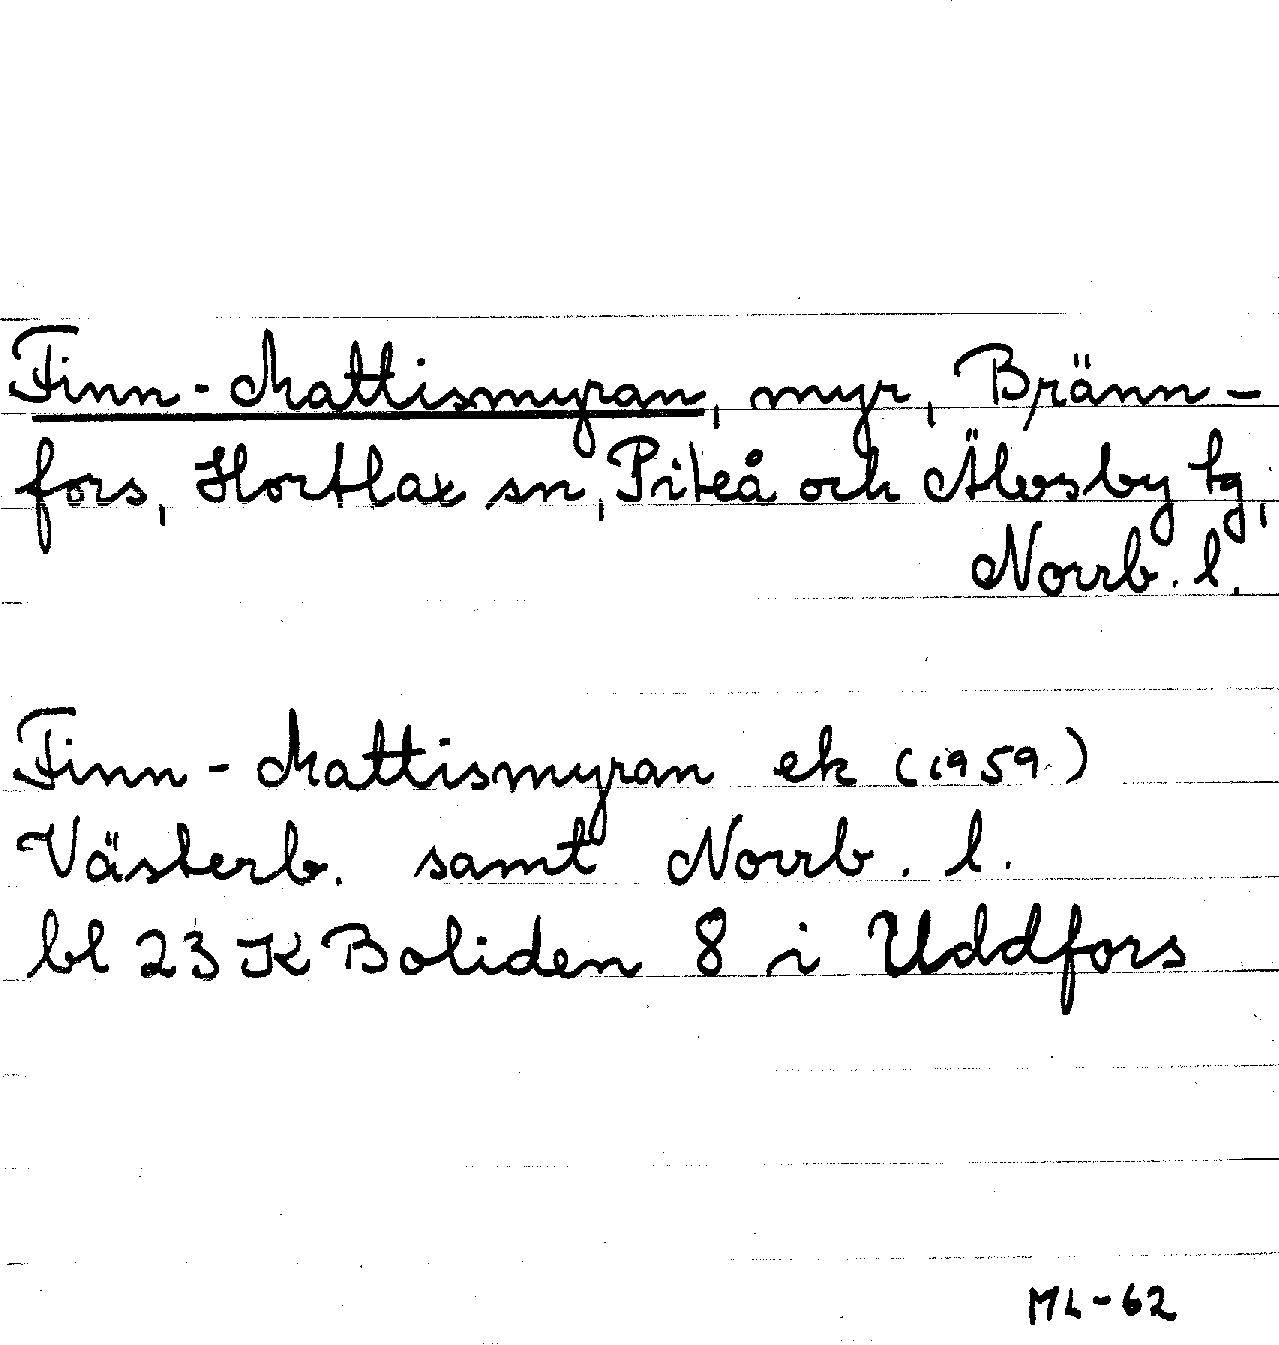 Finn-Mattismyran, myr, Bränn-
fors, Hortlax sn, Piteå och Älvsby tg,
Norrb. l.
Finn-Mattismyran ek (1959)
Västerb. samt Norrb. l.
bl 23 K Boliden 8 i Uddfors
ML-62